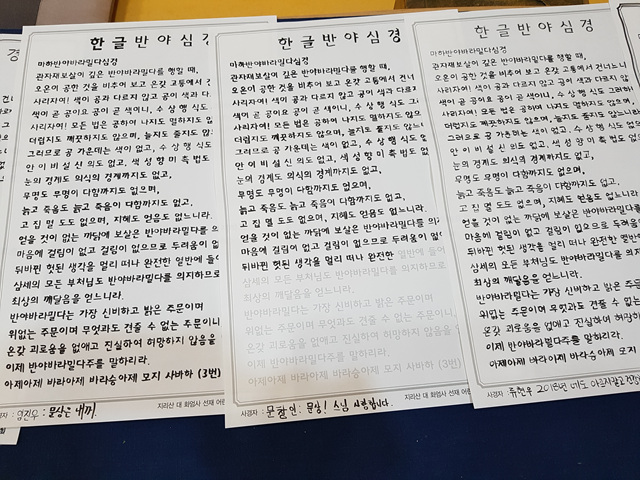 한글반야심경
마하반야바라밀다심경
관자재보살이 깊은 반야바라밀다를 행할 때,
오온이 공한 것을 비추어 보고 온갖 고통에서 건너
사리자여! 색이 공과 다르지 않고 공이 색과 다
색이 곧 공이요 공이 곧 색이니, 수 상 행 식도
사리자여! 모든 법은 공하여 나지도 멸하지도 않으
더럽지도 깨끗하지도 않으며, 늘지도 줄지도 않
그러므로 공 가운데는 색이 없고, 수 상 행 식
안 이 비 설 신 의도 없고, 색 성 향 미 촉 법도
눈의 경계도 의식의 경계까지도 없고,
무명도 무명이 다함까지도 없으며,
늙고 죽음도 늙고 죽음이 다함까지도 없고,
고 집 멸 도도 없으며, 지혜도 얻음도 없느니라.
얻을 것이 없는 까닭에 보살은 반야바라밀다를
마음에 걸림이 없고 걸림이 없으므로 두려움이
뒤바뀐 헛된 생각을 멀리 떠나 완전한 열반에 들어
삼세의 모든 부처님도 반야바라밀다를 의지하므로
최상의 깨달음을 얻느니라.
반야바라밀다는 가장 신비하고 밝은 주문이며
위없는 주문이며 무엇과도 견줄 수 없는 주문이니
온갖 괴로움을 없애고 진실하여 허망하지 않음을
이제 반야바라밀다주를 말하리라.
아제아제 바라아제 바라승아제 모지 사바하 (3번)
지리산 대 화엄사 선재 어린
한글반야심경
마하반야바라밀다심경
관자재보살이 깊은 반야바라밀다를 행할 때,
오온이 공한 것을 비추어 보고 온갖 고통에서 건너
사리자여! 색이 공과 다르지 않고 공이 색과 다르
색이 곧 공이요 공이 곧 색이니, 수 상 행 식도
사리자여! 모든 법은 공하여 나지도 멸하지도 않으며
더럽지도 깨끗하지도 않으며, 늘지도 줄지도 않느
그러므로 공 가운데는 색이 없고, 수 상 행 식도
안 이 비 설 신 의도 없고, 색 성 향 미 촉 법도 없
눈의 경계도 의식의 경계까지도 없고,
무명도 무명이 다함까지도 없으며,
늙고 죽음도 늙고 죽음이 다함까지도 없고,
고 집 멸 도도 없으며, 지혜도 얻음도 없느니라.
얻을 것이 없는 까닭에 보살은 반야바라밀다를 의지
마음에 걸림이 없고 걸림이 없으므로 두려움이 없
뒤바뀐 헛된 생각을 멀리 떠나 완전한 열반에 들어
삼세의 모든 부처님도 반야바라밀다를 의지하므로
최상의 깨달음을 얻느니라.
반야바라밀다는 가장 신비하고 밝은 주문이며
위없는 주문이며 무엇과도 견줄 수 없는 주문이니
온갖 괴로움을 없애고 진실하여 허망하지 않음을
이제 반야바라밀다주를 말하리라.
아제아제 바라아제 바라승아제 모지 사바하 (3번)
사경자 : 스님 사랑합니다.
지리산 대 화엄사 선재 어린
한글반야심경
마하반야바라밀다심경
관자재보살이 깊은 반야바라밀다를 행할 때,
오온이 공한 것을 비추어 보고 온갖 고통에서 건너느니
사리자여! 색이 공과 다르지 않고 공이 색과 다르지 않
색이 곧 공이요 공이 곧 색이니, 수 상 행 식도 그러하
사리자여! 모든 법은 공하여 나지도 멸하지도 않으며,
더럽지도 깨끗하지도 않으며, 늘지도 줄지도 않느니라
그러므로 공 가운데는 색이 없고, 수 상 행 식도 없으
안 이 비 설 신 의도 없고, 색 성 향 미 촉 법도 없으
눈의 경계도 의식의 경계까지도 없고,
무명도 무명이 다함까지도 없으며,
늙고 죽음도 늙고 죽음이 다함까지도 없고,
고 집 멸 도도 없으며, 지혜도 얻음도 없느니라.
얻을 것이 없는 까닭에 보살은 반야바라밀다를
마음에 걸림이 없고 걸림이 없으므로 두려움이
뒤바뀐 헛된 생각을 멀리 떠나 완전한 열반에
삼세의 모든 부처님도 반야바라밀다를
최상의 깨달음을 얻느니라.
반야바라밀다는 가장 신비하고 밝은 주문이며
위없는 주문이며 무엇과도 견줄 수 없는
온갖 괴로움을 없애고 진실하여 허망하
이제 반야바라밀다주를 말하리라.
아제아제 바라아제 바라승아제 모지
사경자 : 류현우